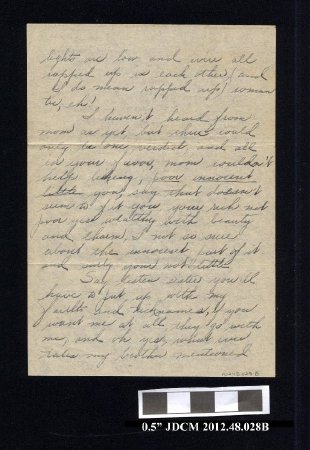 lights are low and we're all
rapped up in each other, (and
I do mean rapped up) woman
eh!
I haven't heard from
mom as yet, but there could
only be one verdict, and all
in your favor, mom couldn't
help liking poor innocent
little you, say that doesn't
seem to fit you your not
poor your wealthy with beauty
and charm, I not so sure
about the innocent part of it
and your not little
Say listen sister you'll
have to put up with my
faults and nicknames, if you
want me at all they go with
me, and oh yes, what were
tales my brother mentioned
2012.48.028 B
0.5" JDCM 2012.48.028B